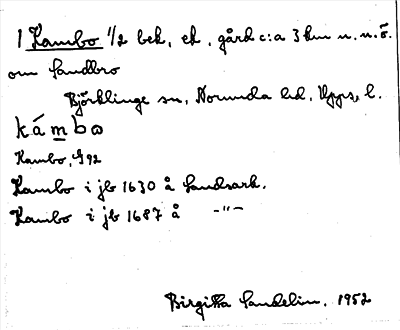 1 Kambo 1/2 bek. ek. gård c:a 3 km n.n.ö.
om Sandbro
Björklinge sn, Norunda hd, Upps. l.
kámbɷ
Kambo, G92
Kambo i jb 1630 å Landsark.
Kambo i jb 1687 å -"-
Birgitta Sandelin. 1952